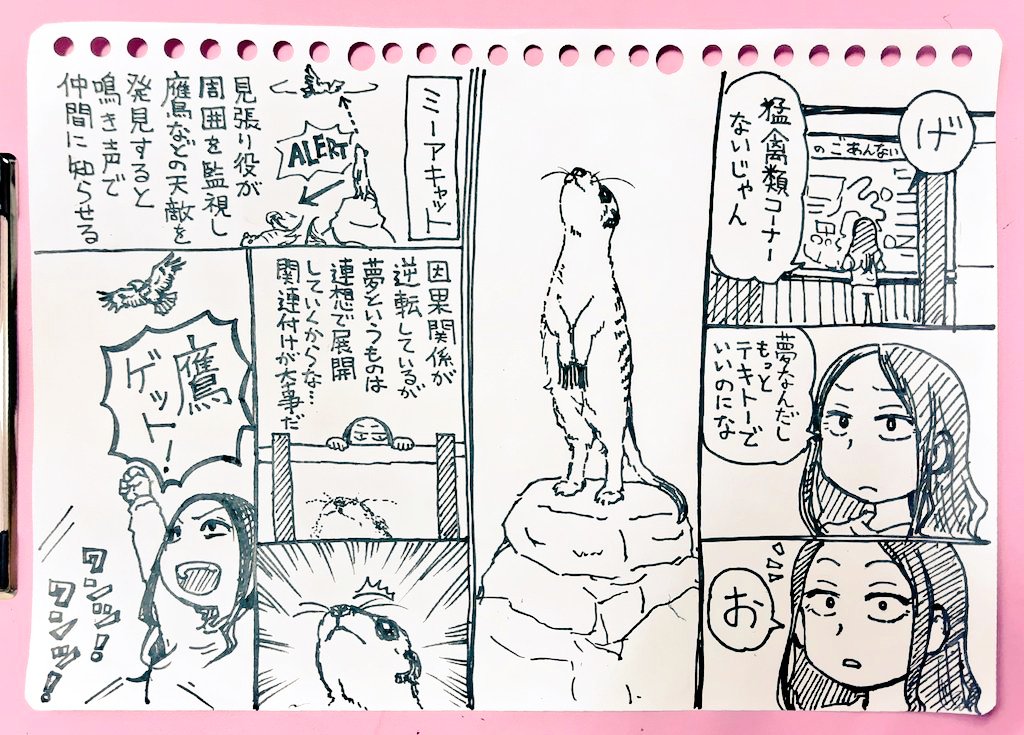 げ
のごあんない
猛禽類コーナー
ないじゃん
夢なんだし
もっと
テキトーで
いいのにな
お
ミーアキャット
ALERT
見張り役が
周囲を監視し
鷹などの天敵を
発見すると
鳴き声で
仲間に知らせる
因果関係が
逆転しているが
夢というものは
連想で展開
していくからな…
関連付けが大事だ
鷹
ゲットー!
ワンッ!
ワンッ!